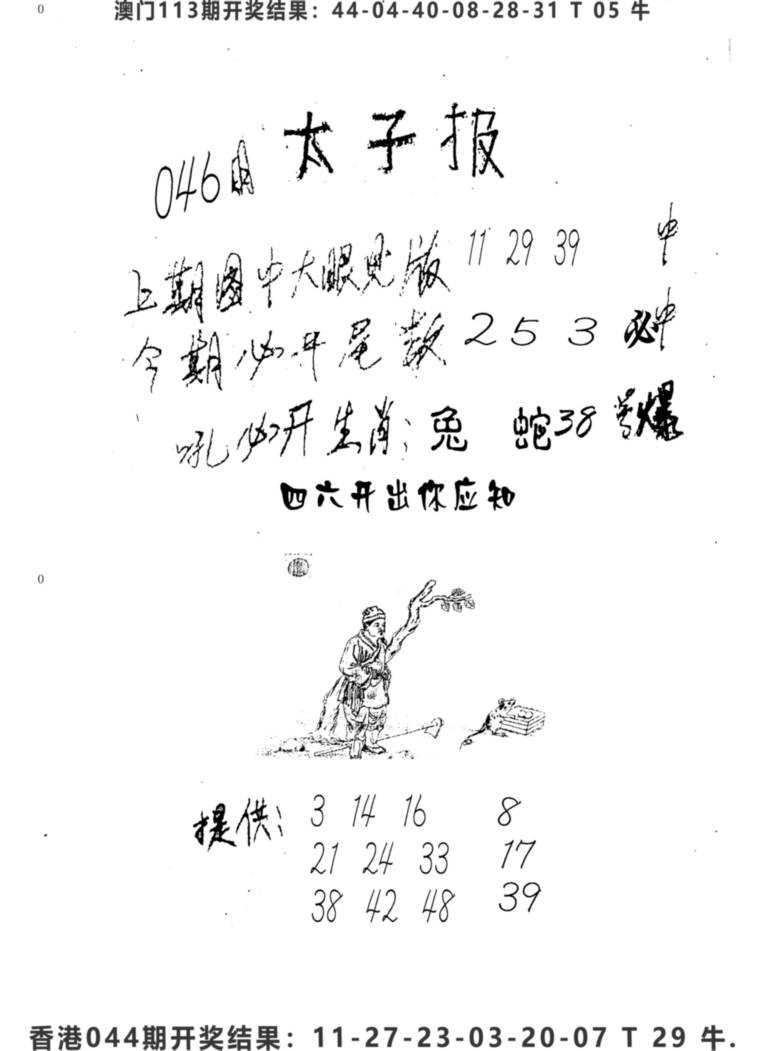 0
澳门113期开奖结果：44-04-40-08-28-31 T 05 牛
太子报
046期
上期图中大眼见版 11 29 39 中
今期必开尾数 2 5 3 必中
吼必开生肖：兔 蛇38号爆
四六开出你应知
0
提供： 3 14 16 8
21 24 33 17
38 42 48 39
香港044期开奖结果：11-27-23-03-20-07 T 29 牛.